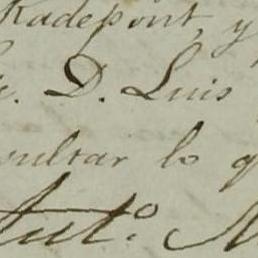 Radepont, y
D. Luis
sultar lo q
Ant.º M